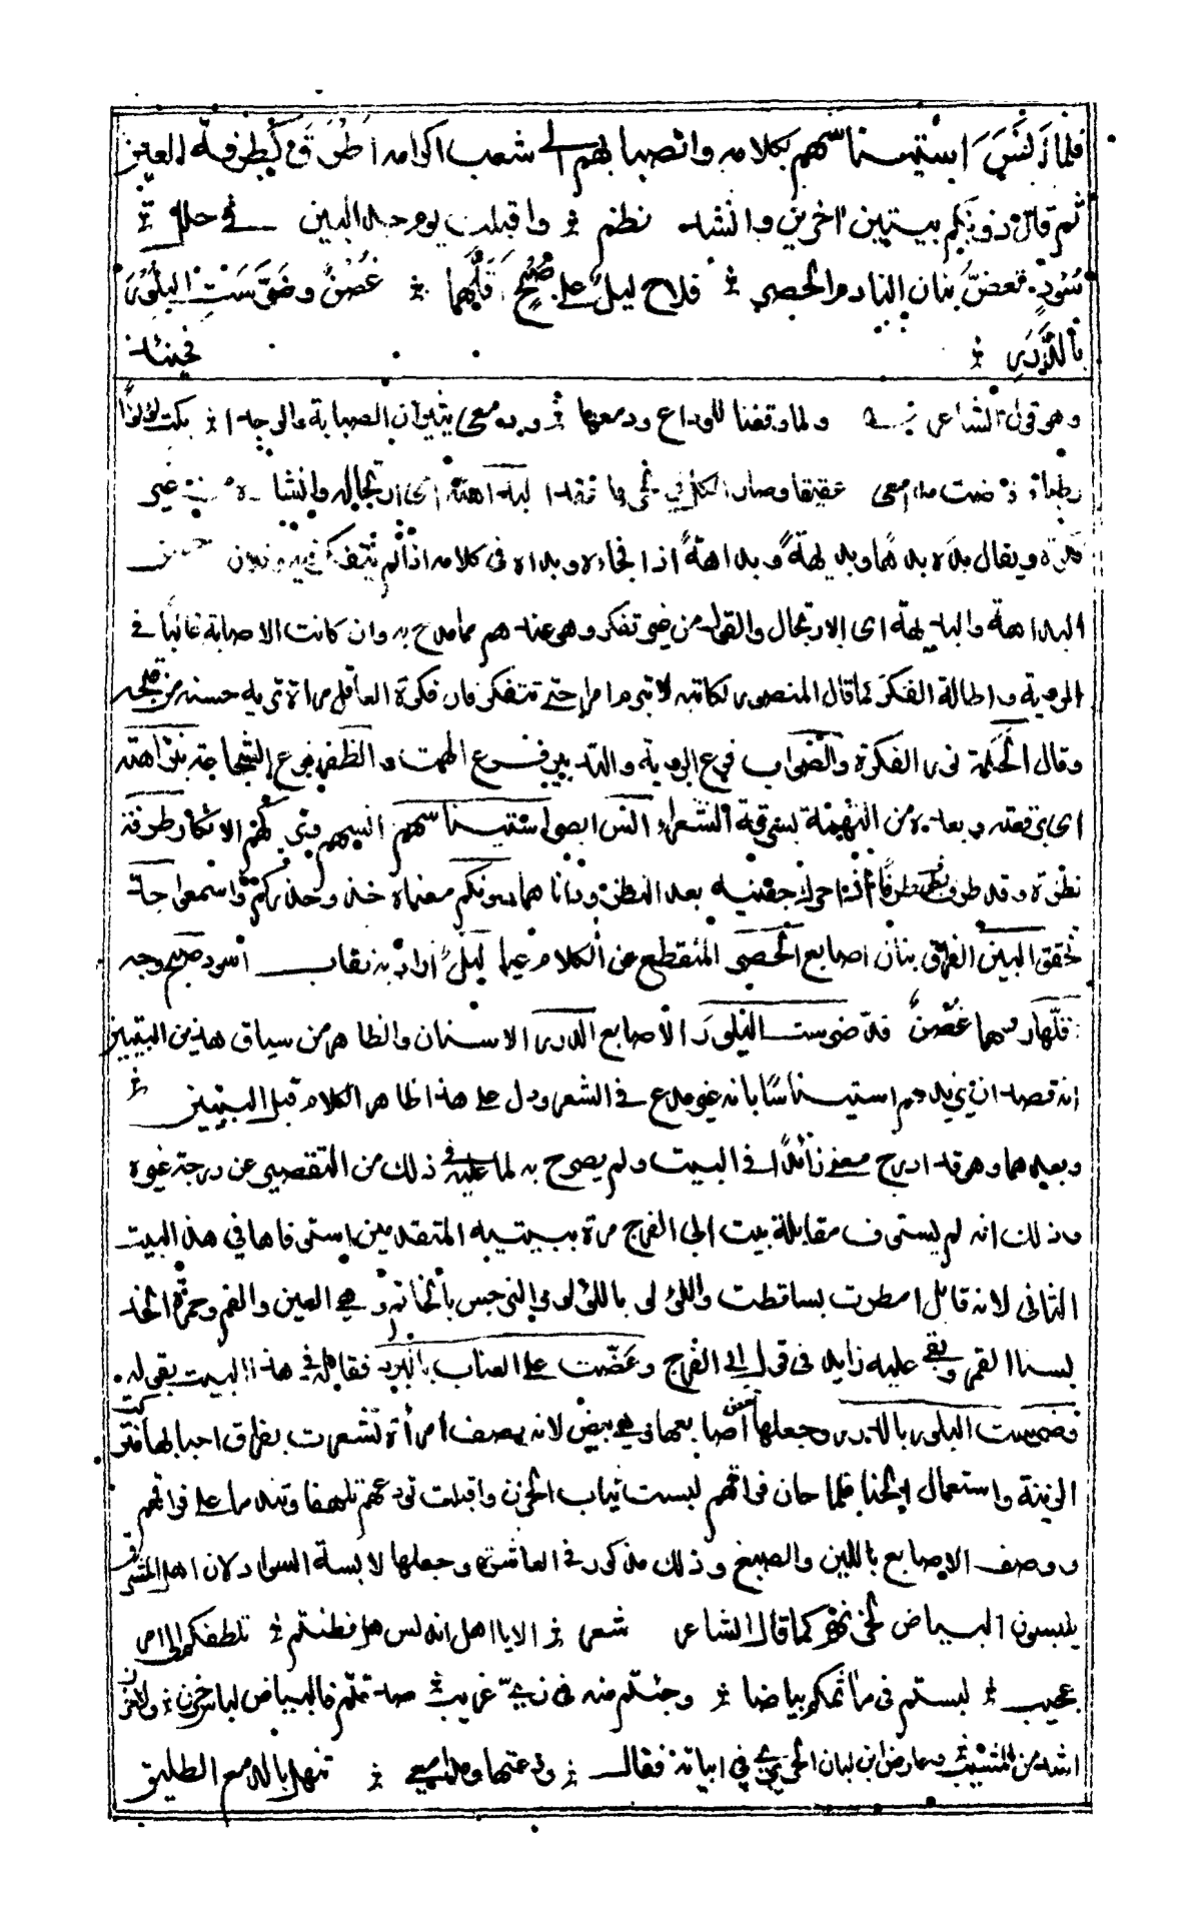 فلما آنس استيناسهم بكلامه وانصبابهم الى شعب اكرامه اطرق كطرفة العين
ثم قال ودونكم بيتين اخرين وانشد نظم واقبلت يوم جد البين في حلل
سود تعض بنان النادم الحصر فلاح ليل على صبح اقلهما غصن وضرست البلور
بالدرر فحينئذ
وهو قول الشاعر ولما وقفنا للوداع ودمعها ودمعى يثيران الصبابة والوجدا بكت لؤلؤا
رطبا ففاضت مدامعى عقيقا وصار الكل في نحرها عقدا البداهته اى ارتجاله وانشا من غير
فكرة ويقال بدهه بدها وبديهة وبداهة اذا فجاءه وبداه فى كلامه اذا لم يتفكر فيه
البداهة والبديهة اى الارتجال والقول من غير تفكر وهو عندهم مما مدح به وان كانت الاصابة غالبا في
الروية واطالة الفكر كما قال المنصور لكاتبه لا تبرم امرا حتى تتفكر فان فكرة العاقل مراة تريه حسنه من قبحه
وقال الحكمة نور الفكرة والصواب فرع الروية والتدبير فرع الهمة والظفر فرع الشجاعة بنزاهته
اى برفعته وبعده من التهمة لسرقة الشعراء انس ابصر استيناسهم انسهم الاكارم طرفة
نظرة وقد طرف بطرف طرفا اذا حرك جفنيه بعد النظر ودانا هما دونكم معناه خذ وحذركم واسمعوا جد
تحقق البين الفراق بنان اصابع الحصر المنقطع عن الكلام عيا ليل اراد به نقاب اسود صبح وجه
اقلهما رفعهما غصن قد ضرست البلور الاصابع الدرر الاسنان والظاهر من سياق هذين البيتين
انه قصد ان يزيدهم استيناسا بانه غير مدع في الشعر ودل على هذا ظاهر الكلام قبل البيتين
وبعدهما وهو قد ادرج معنى زائدا في البيت ولم يصرح به لما عليه في ذلك من التقصير عن درجة غيره
وذلك انه لم يستوف مقابلة بيت ابى الفرج مرة ببيتيه المتقدمين استوفاها في هذا البيت
الثانى لانه قابل امطرت بساقطت واللؤلؤ باللؤلؤ والنرجس بالخاتم وهي العين والفم وحمرة الخد
بسنا القمر وبقي عليه زايد فى قول ابى الفرج وعضت على العناب بالبرد فقابله في هذا البيت بقوله
فضرست البلور بالدرر وجعلها تعض اصابعها وهي بيض لانه يصف امرأة شعرت بفراق احبابها فتركت
الزينة واستعمال الحنا فلما حان فراقهم لبست ثياب الحزن واقبلت تودعهم تلهفا وتندما على فراقهم
ووصف الاصابع باللين والصبغ وذلك مذكور في العاشرة وجعلها لابسة السواد لان اهل المشرق
يلبسون البياض لحزنهم كما قال الشاعر شعر الا يا اهل اندلس هل فطنتم تلطفكم الى امر
عجيب لبستم فى مأتمكم بياضا وجئتم منه فى زي غريب صدقتم فالبياض لباس حزن ولا حزن
اشد من المشيب وعارض ابن لبان الحريري في ابياته فقال ودعتها ومدامعي تنهل بالدمع الطليق